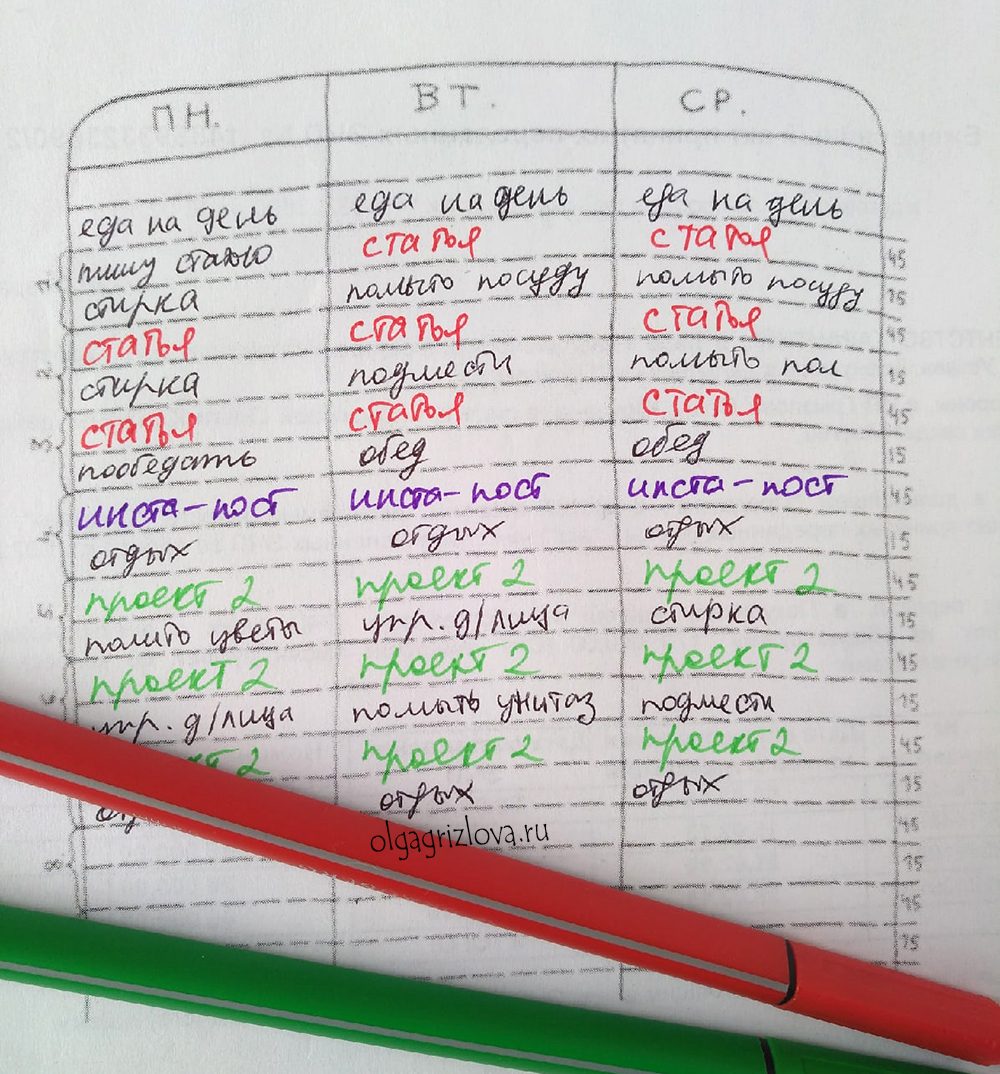 ПН. ВТ. СР.
еда на день еда на день еда на день
пишу статью статья статья 45
1 стирка помыть посуду помыть посуду 15
статья статья статья 45
2 стирка подмести помыть пол 15
статья статья статья 45
3 пообедать обед обед 15
инста-пост инста-пост инста-пост 45
отдых отдых отдых 15
проект 2 проект 2 проект 2 45
5 полить цветы упр. д/лица стирка 15
проект 2 проект 2 проект 2 45
упр. д/лица помыть унитаз подмести 15
2 проект 2 проект 2 45
отдых отдых 15
olgagrizlova.ru 45
8 15
15
15